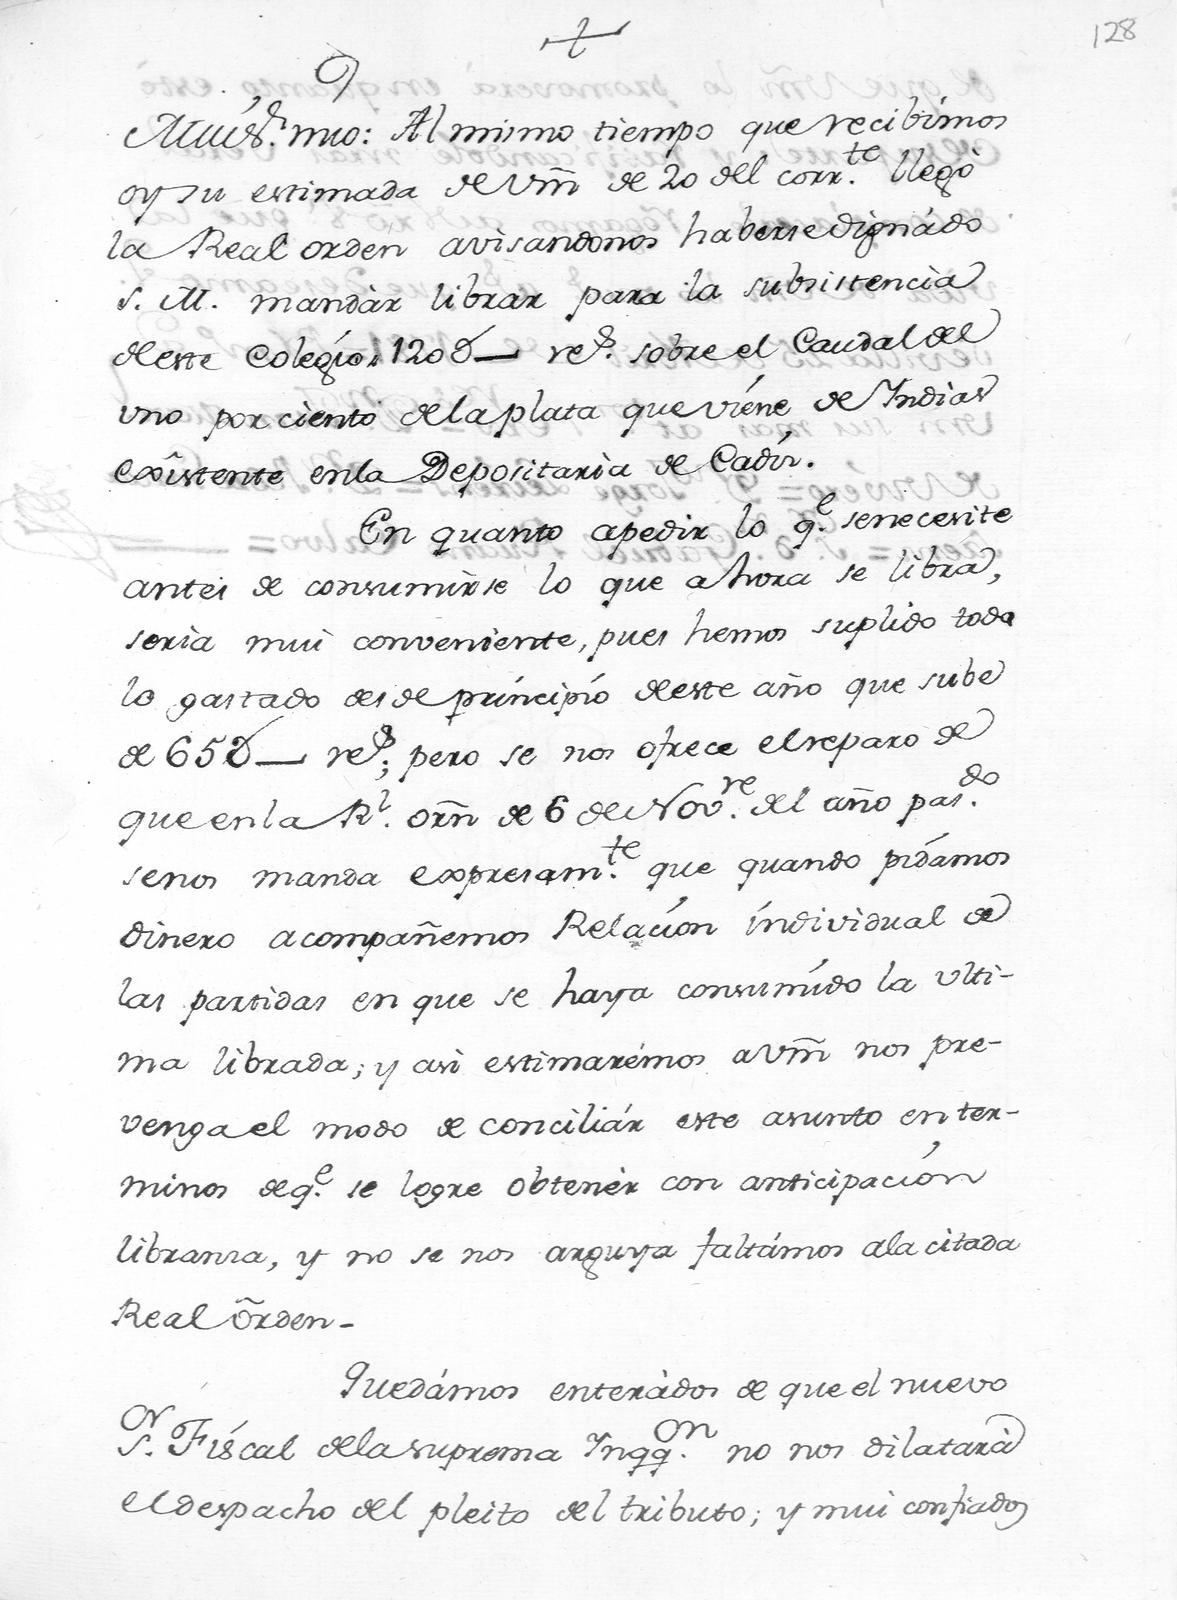 128
Mui S.r mio: Al mismo tiempo que recibímos
oy su estimada de Vm̃ de 20 del corr.te llegò
la Real orden avisandonos haberse dignádo
S. M. mandàr librar para la subsistencia
de este Colegio, 120 D— rs. sobre el Caudal del
uno por ciento de la plata que viéne de Indias
existente en la Depositaria de Cadiz.
En quanto a pedir lo q.e se necesite
antes de consumirse lo que ahora se libra,
seria mui conveniente, pues hemos suplido todo
lo gastado desde príncipío de este año que sube
de 65 D— rs; pero se nos ofrece el reparo de
que en la R.l orñ de 6 de Nov.re del año pas.do
se nos manda expresam.te que quando pidámos
dinero acompañemos Relación índividual de
las partidas en que se haya consumído la ulti-
ma librada; y asi estimarémos a Vm̃ nos pre-
venga el modo de conciliár este asunto en ter-
minos de q.e se logre obtenér con anticipación
libranza, y no se nos arguya faltámos a la citada
Real Õrden-
Quedámos enterádos de que el nuevo
S.or Fiscal de la suprema Inqq.on no nos dilatarà
el despacho del pleito del tributo; y mui confiados